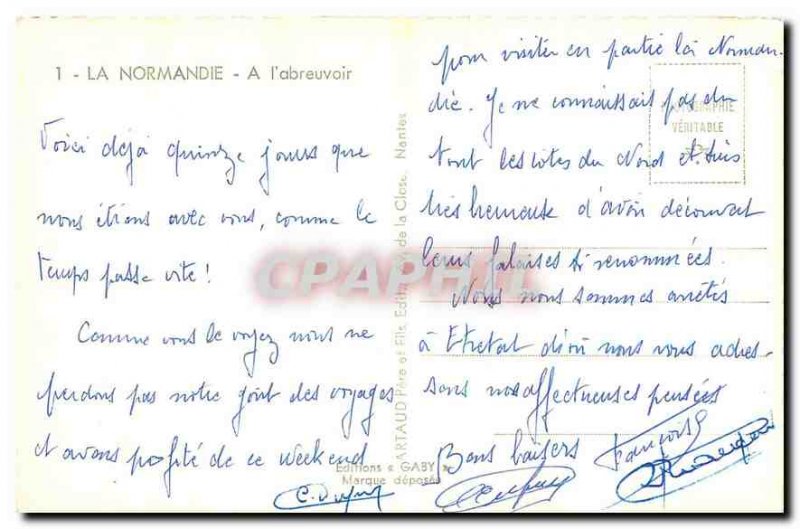 1 - LA NORMANDIE - A l'abreuvoir
Voici déjà quinze jours que
nous étions avec vous, comme le
temps passe vite !
Comme vous le voyez nous ne
perdons pas notre goût des voyages
et avons profité de ce weekend
C. Dupuy
pour visiter en partie la Norman-
die. Je ne connaissait pas du
tout les côtes du Nord et suis
très heureuse d'avoir découvert
leurs falaises si renommées.
Nous nous sommes arrêtés
à Etretat d'où nous vous adres-
sons nos affectueuses pensées
Bons baisers
Françoise
ARTAUD Père et Fils, Editeurs, de la Close, Nantes
PHOTOGRAPHIE
VÉRITABLE
Editions « GABY »
Marque déposée
CPAPHIL